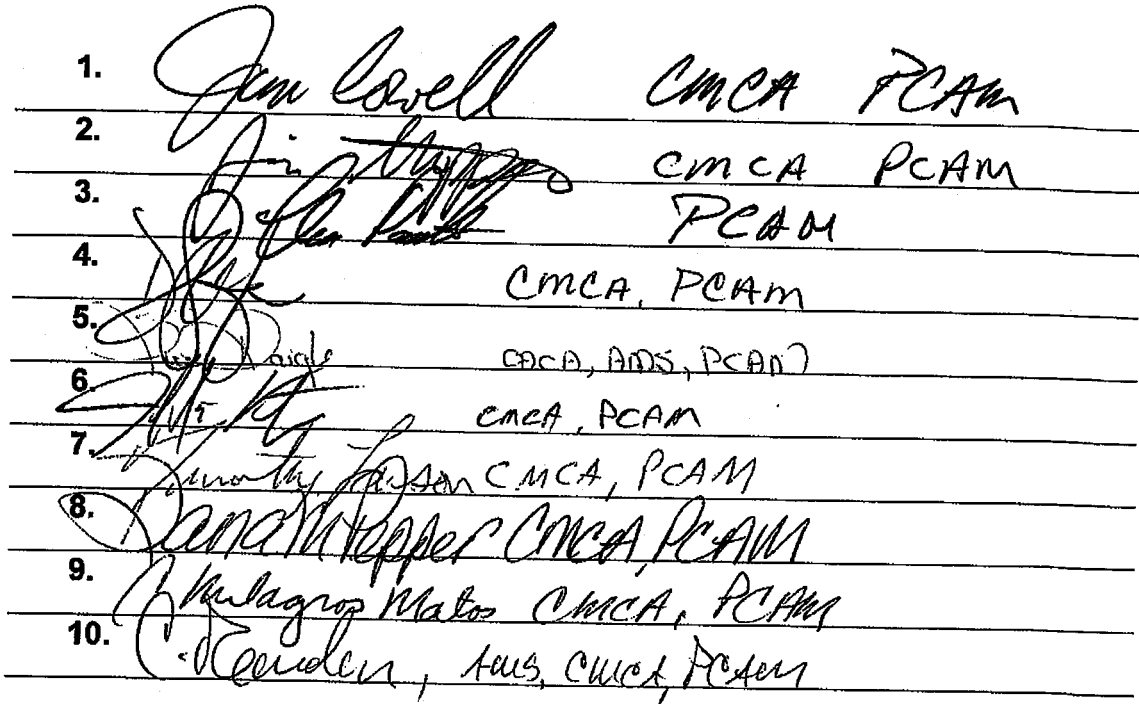 1. Jam Cowell CMCA PCAM
2. Jim CMCA PCAM
3. PCAM
4. CMCA, PCAM
5. Daigle CMCA, AMS, PCAM
6. CMCA, PCAM
7. Timothy Larson CMCA, PCAM
8. Dana M Pepper CMCA, PCAM
9. Milagros Matos CMCA, PCAM
10. C. AMS, CMCA, PCAM